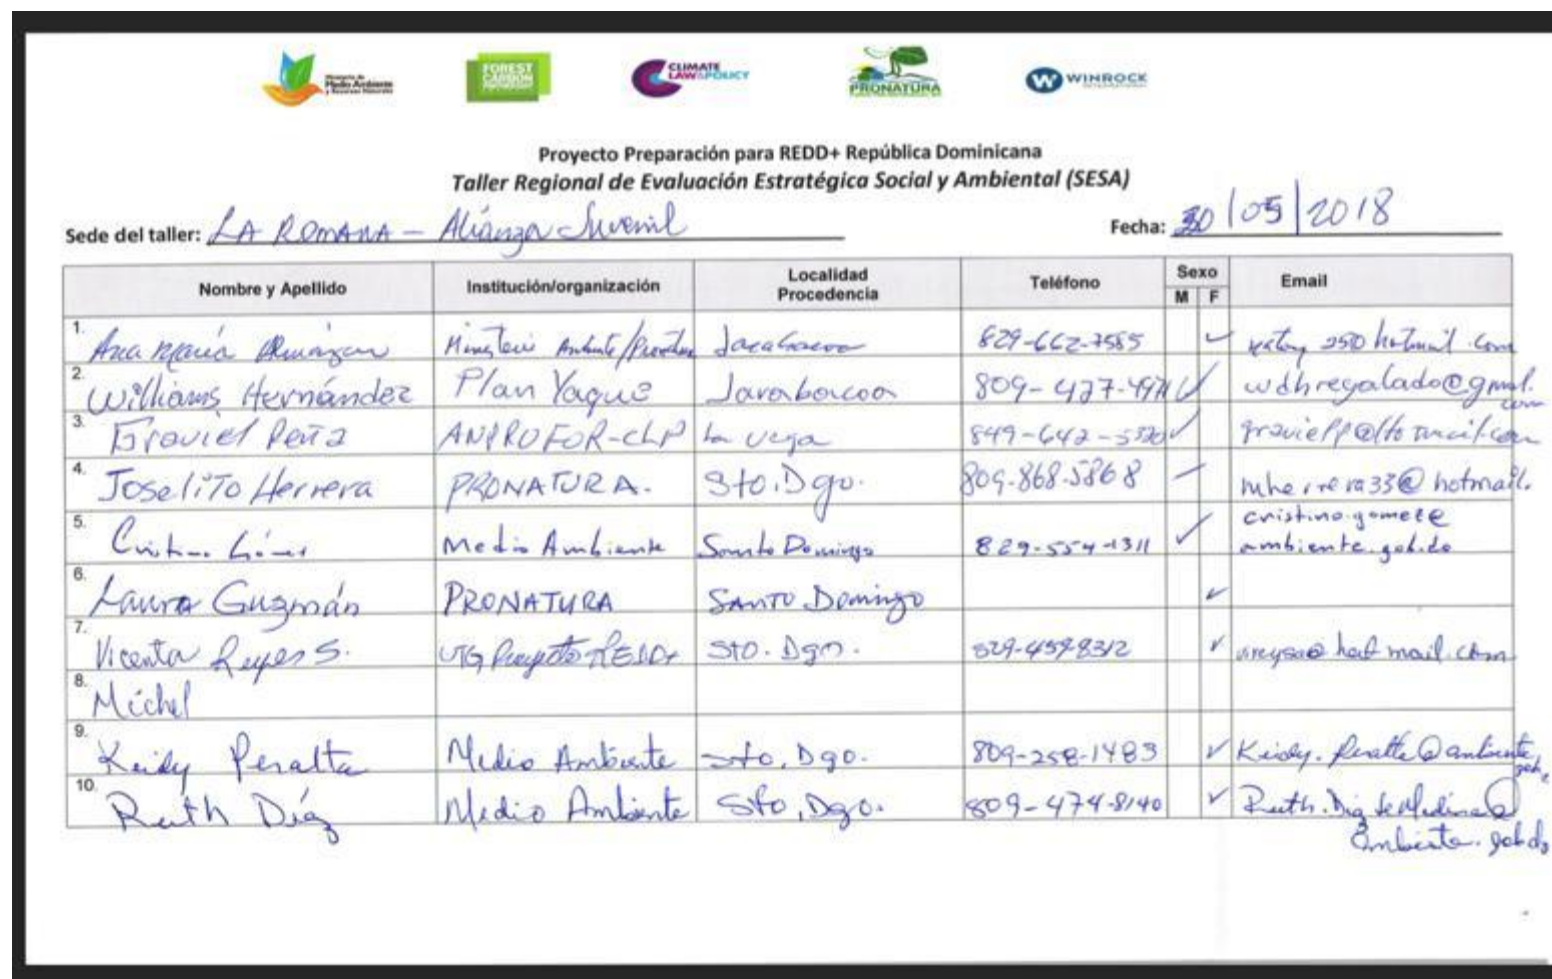 Ministerio de
Medio Ambiente
y Recursos Naturales
FOREST
CARBON
PARTNERSHIP
CLIMATE
LAW&POLICY
PRONATURA
WINROCK
INTERNATIONAL
Proyecto Preparación para REDD+ República Dominicana
Taller Regional de Evaluación Estratégica Social y Ambiental (SESA)
Sede del taller: LA ROMANA - Alianza Juvenil Fecha: 30/05/2018
Nombre y Apellido Institución/organización Localidad Procedencia Teléfono Sexo M F Email
1. Ana María Jarabacoa 829-662-7585 ✓ hotmail.com
2. Williams Hernández Plan Yaque Jarabacoa 809-427-4971 ✓ wdhregalado@gmail.com
3. Graviel Peña ANPROFOR-CLP La Vega 849-642-5320 ✓
4. Joselito Herrera PRONATURA. Sto. Dgo. 809-868-5868 mherrera33@hotmail.
5. Cristino Gómez Medio Ambiente Santo Domingo 829-554-1311 ✓ cristino.gomez@
ambiente.gob.do
6. Laura Guzmán PRONATURA SANTO Domingo ✓
7. Vicenta Reyes S. UTG Proyecto REDD+ Sto. Dgo. 829-459-8312 ✓ hotmail.com
8. Michel
9. Keidy Peralta Medio Ambiente Sto, Dgo. 809-258-1483 ✓ Keidy.Peralta@ambiente.gob.
10. Ruth Díaz Medio Ambiente Sto, Dgo. 809-474-8140 ✓ Ruth.Diaz
ambiente.gob.do